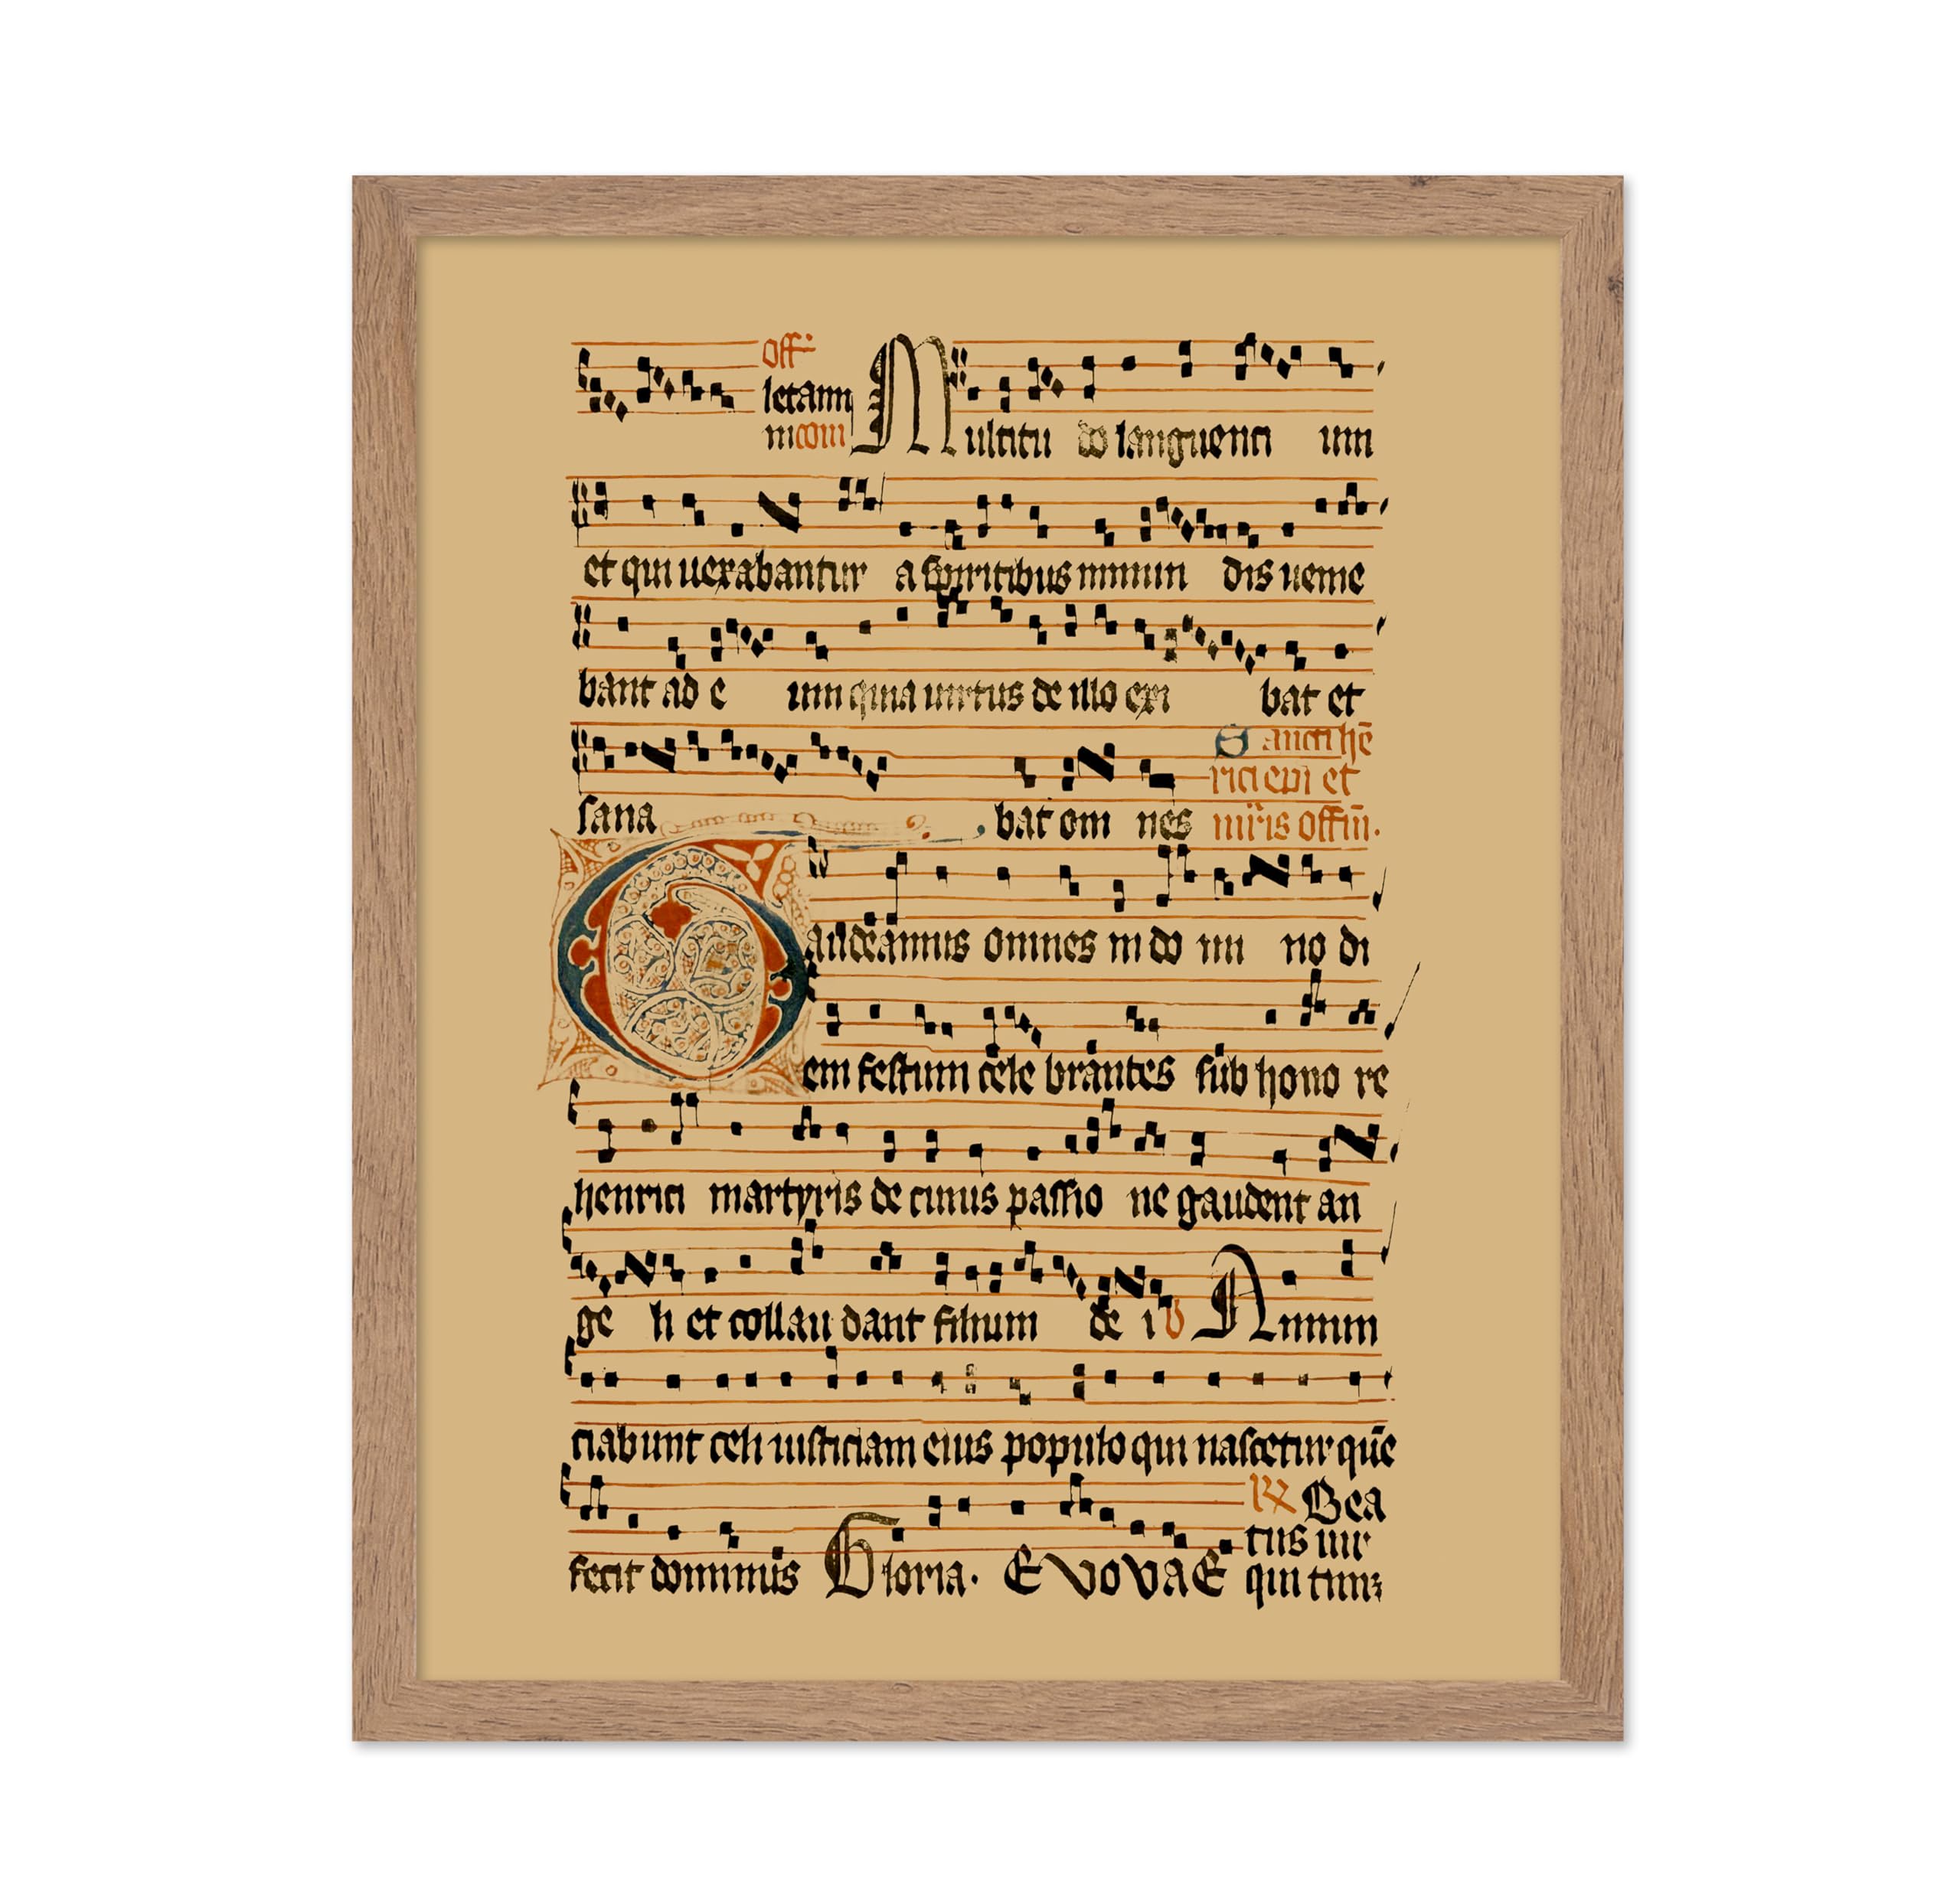 Off
letami
ni com Multitu do languenti um
et qui uexabantur a spiritibus inmun dis uenie
bant ad e um quia uirtus de illo exi bat et
Sancti hē
rici epi et
sana bat om nes mr̄is offm̄.
Gaudeamus omnes in do mi no di
em festum cele brantes sub hono re
henrici martyris de cuius passio ne gaudent an
ge li et collau dant filium de i V Annun
ciabunt celi iusticiam eius populo qui nascetur quē
R Bea
tus uir
fecit dominus Gloria. EVOVAE qui tim